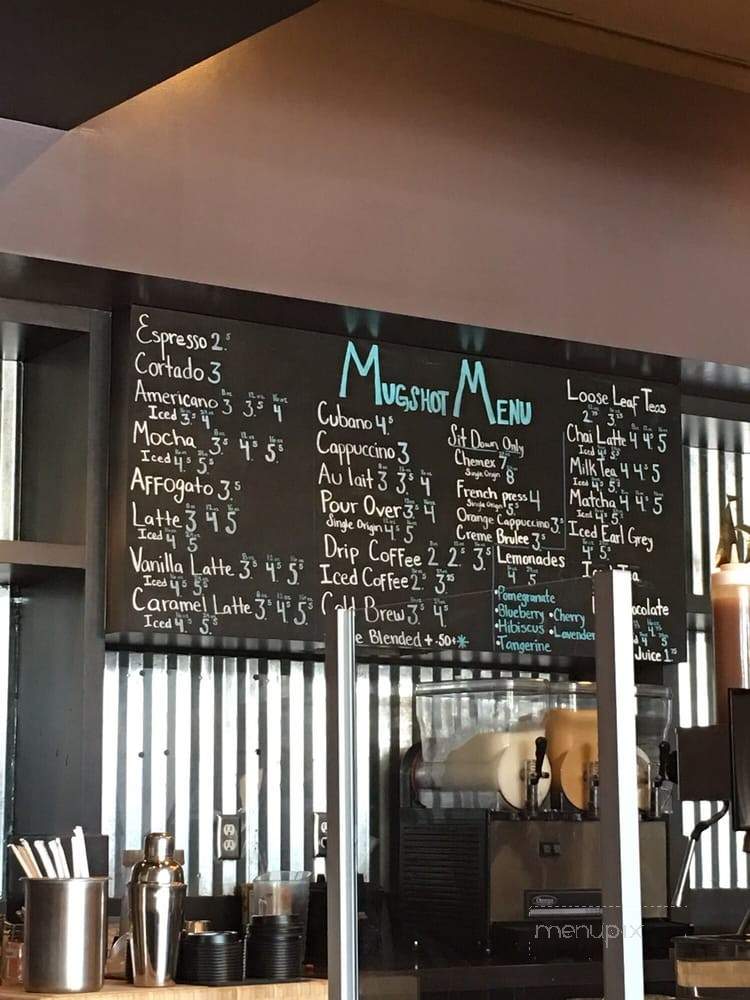 Mugshot Menu
Espresso 2.5
Cortado 3
Americano 3 3.5 4
Iced 3.5 4
Mocha 3.5 4.5 5.5
Iced 4.5 5.5
Affogato 3.5
Latte 3 4 5
Iced 4 5
Vanilla Latte 3.5 4.5 5.5
Iced 4.5 5.5
Caramel Latte 3.5 4.5 5.5
Iced 4.5 5.5
Cubano 4.5
Cappuccino 3
Au lait 3 3.5 4
Pour Over 3.5 4
Single Origin 4.5 5
Drip Coffee 2 2.5 3.5
Iced Coffee 2.5
Cold Brew 3.5 4.5
e Blended + .50¢
Sit Down Only
Chemex 7
Single Origin 8
French press 4
Single Origin 5.5
Orange Cappuccino 3.5
Creme Brulee 3.5
Lemonades
4 5
•Pomegranate
•Blueberry •Cherry
•Hibiscus •Lavender
•Tangerine
Loose Leaf Teas
Chai Latte 4 4.5 5
Iced 4.5 5
Milk Tea 4 4.5 5
Iced 4.5 5.5
Matcha 4 4.5 5
Iced 4 5
Iced Earl Grey
4.5 5
ocolate
4 5
Juice 1.75
menupix